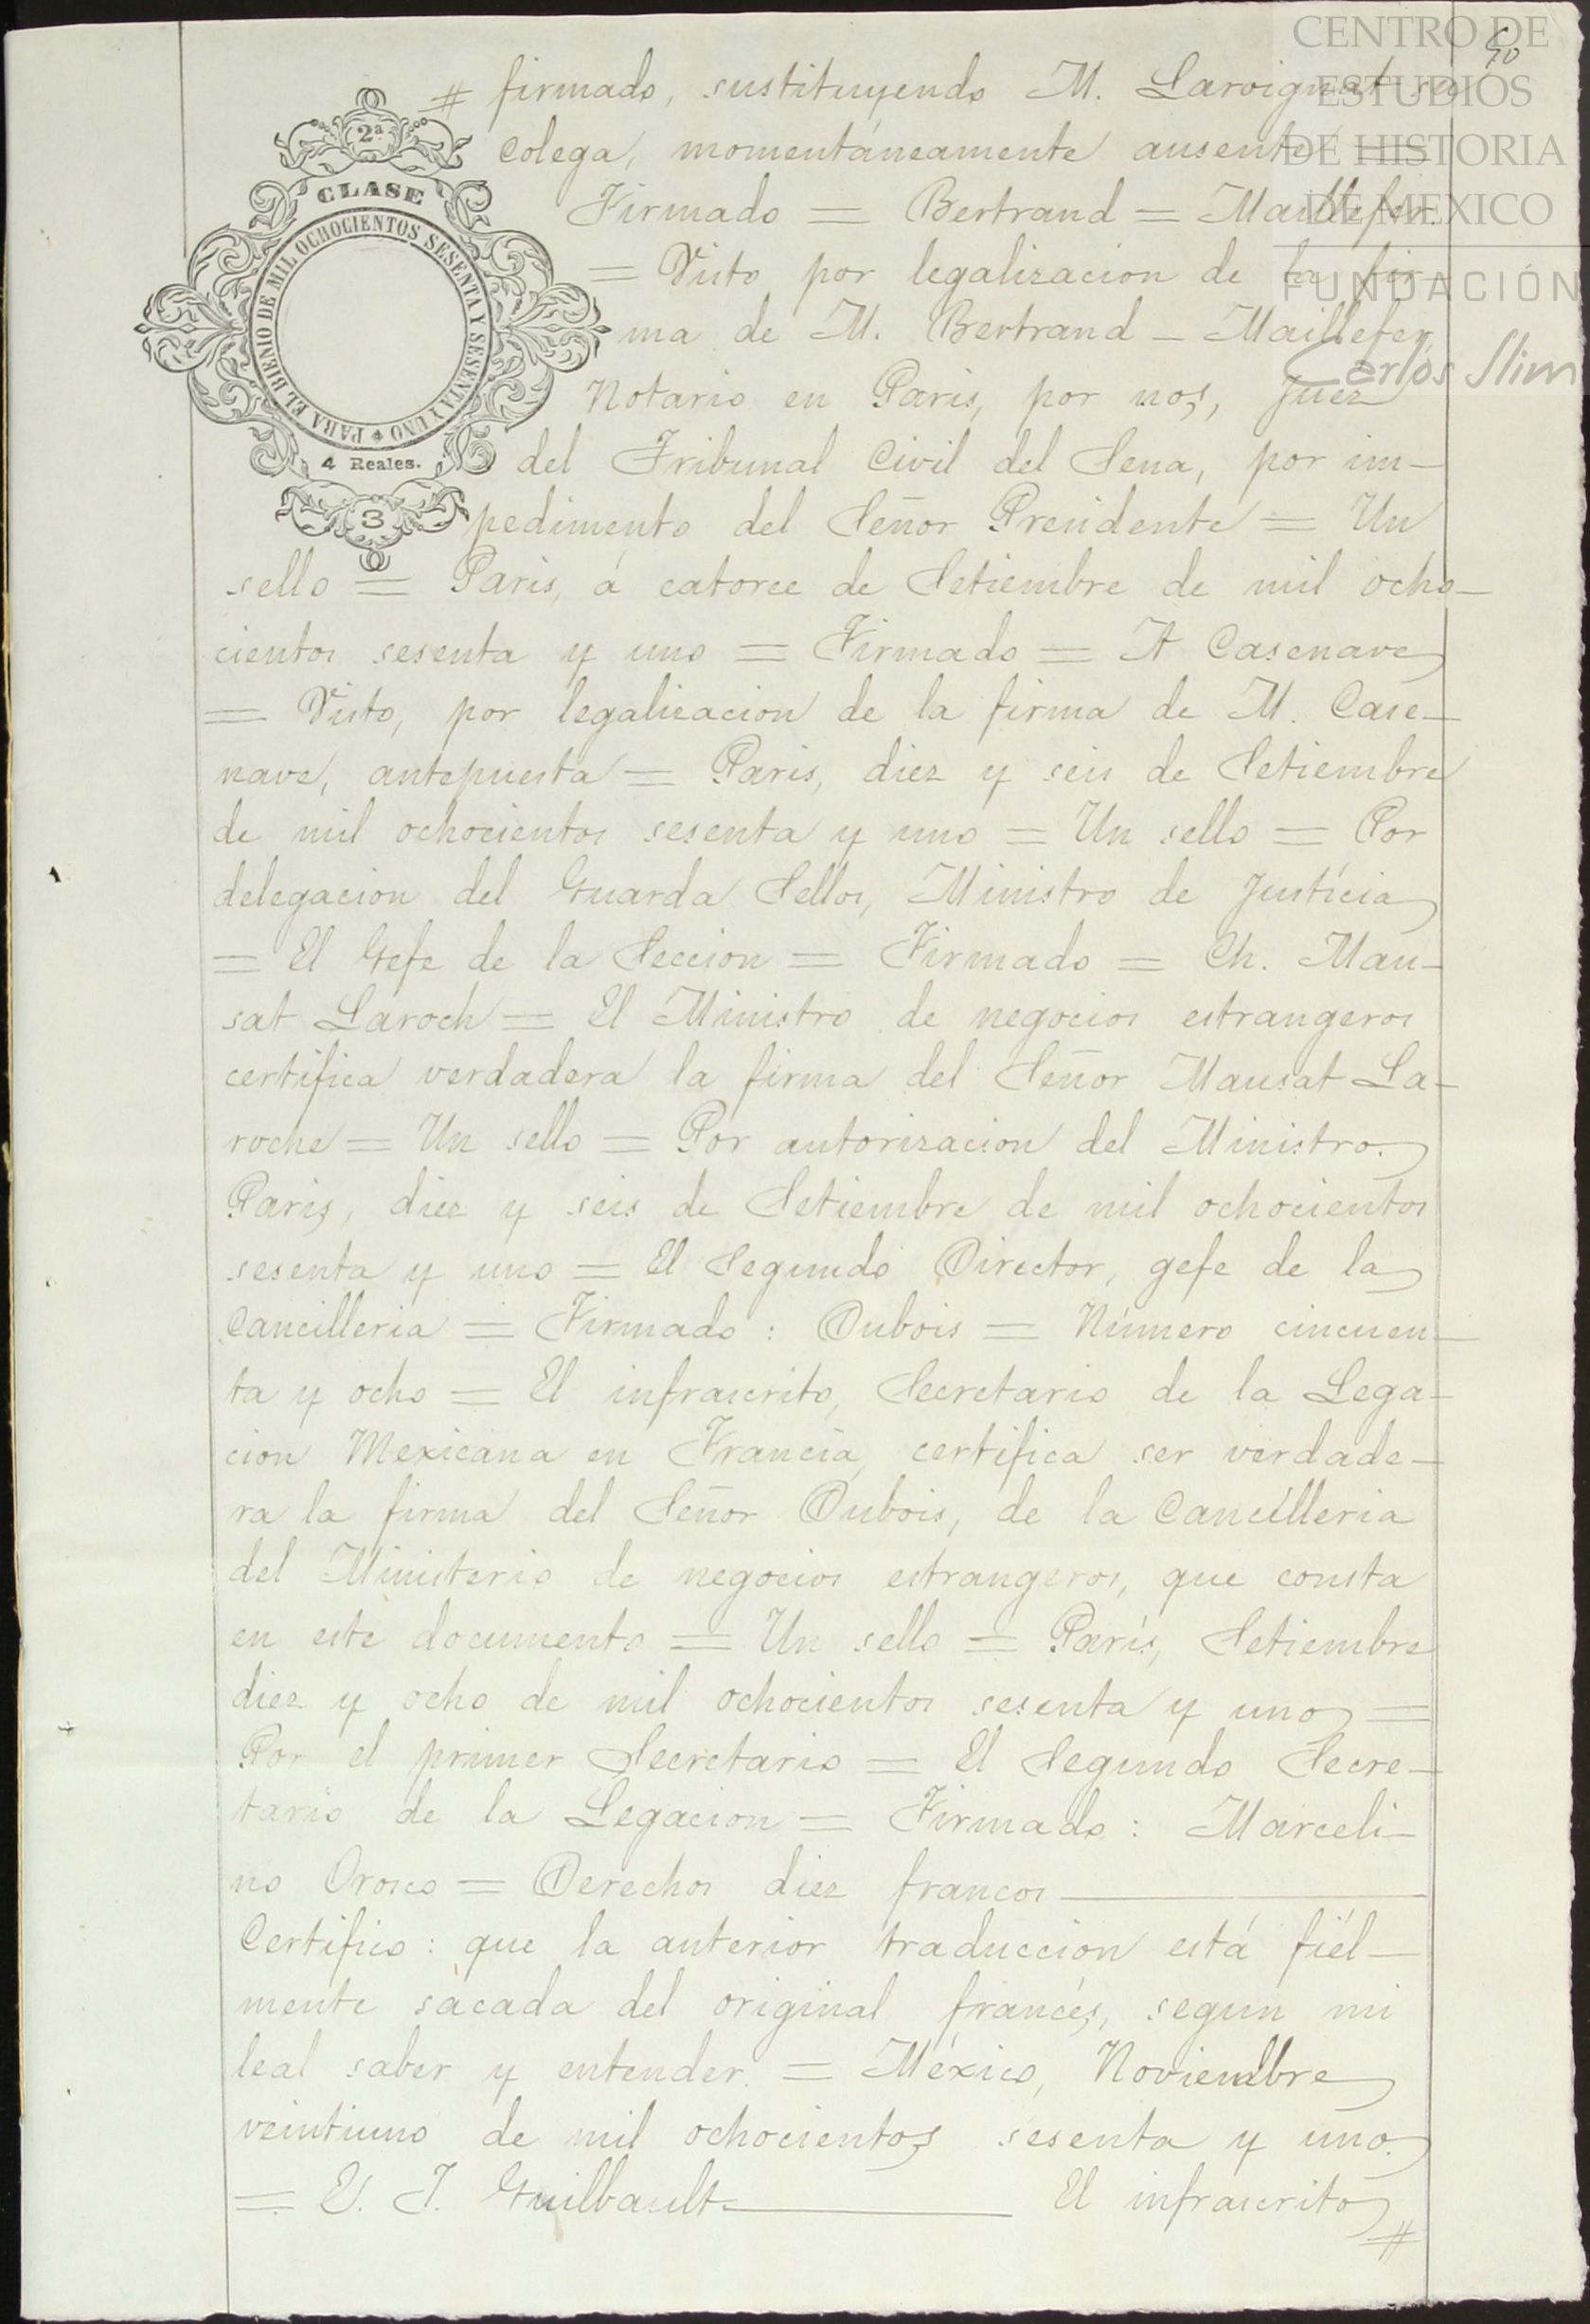 CENTRO DE
ESTUDIOS
DE HISTORIA
DE MEXICO
FUNDACIÓN
Carlos Slim
2ª
CLASE
PARA EL BIENIO DE MIL OCHOCIENTOS SESENTA Y SESENTA Y UNO
4 Reales.
3
# firmado, sustituyendo M. Lavoignat su
colega, momentáneamente ausente =
Firmado = Bertrand = Maillefer.
= Visto por legalizacion de la fir-
ma de M. Bertrand - Maillefer,
Notario en Paris, por nos, Juez
del Tribunal Civil del Sena, por im-
pedimento del Señor Presidente = Un
sello = Paris, á catorce de Setiembre de mil ocho-
cientos sesenta y uno = Firmado = A Casenave
= Visto, por legalizacion de la firma de M. Case-
nave, antepuesta = Paris, diez y seis de Setiembre
de mil ochocientos sesenta y uno = Un sello = Por
delegacion del Guarda Sellos, Ministro de Justicia
= El Gefe de la Seccion = Firmado = Ch. Mau-
sat Laroch = El Ministro de negocios estrangeros
certifica verdadera la firma del Señor Mausat La-
roche = Un sello = Por autorizacion del Ministro.
Paris, diez y seis de Setiembre de mil ochocientos
sesenta y uno = El Segundo Director, gefe de la
Cancilleria = Firmado : Dubois = Número cincuen-
ta y ocho = El infrascrito, Secretario de la Lega-
cion Mexicana en Francia, certifica ser verdade-
ra la firma del Señor Dubois, de la Cancilleria
del Ministerio de negocios estrangeros, que consta
en este documento = Un sello = Paris, Setiembre
diez y ocho de mil ochocientos sesenta y uno =
Por el primer Secretario = El Segundo Secre-
tario de la Legacion = Firmado : Marceli-
no Orosco = Derechos diez francos
Certifico : que la anterior traduccion está fiél-
mente sacada del original francés, segun mi
leal saber y entender. = México, Noviembre
veintiuno de mil ochocientos sesenta y uno.
= E. J. Guilbault. El infrascrito #